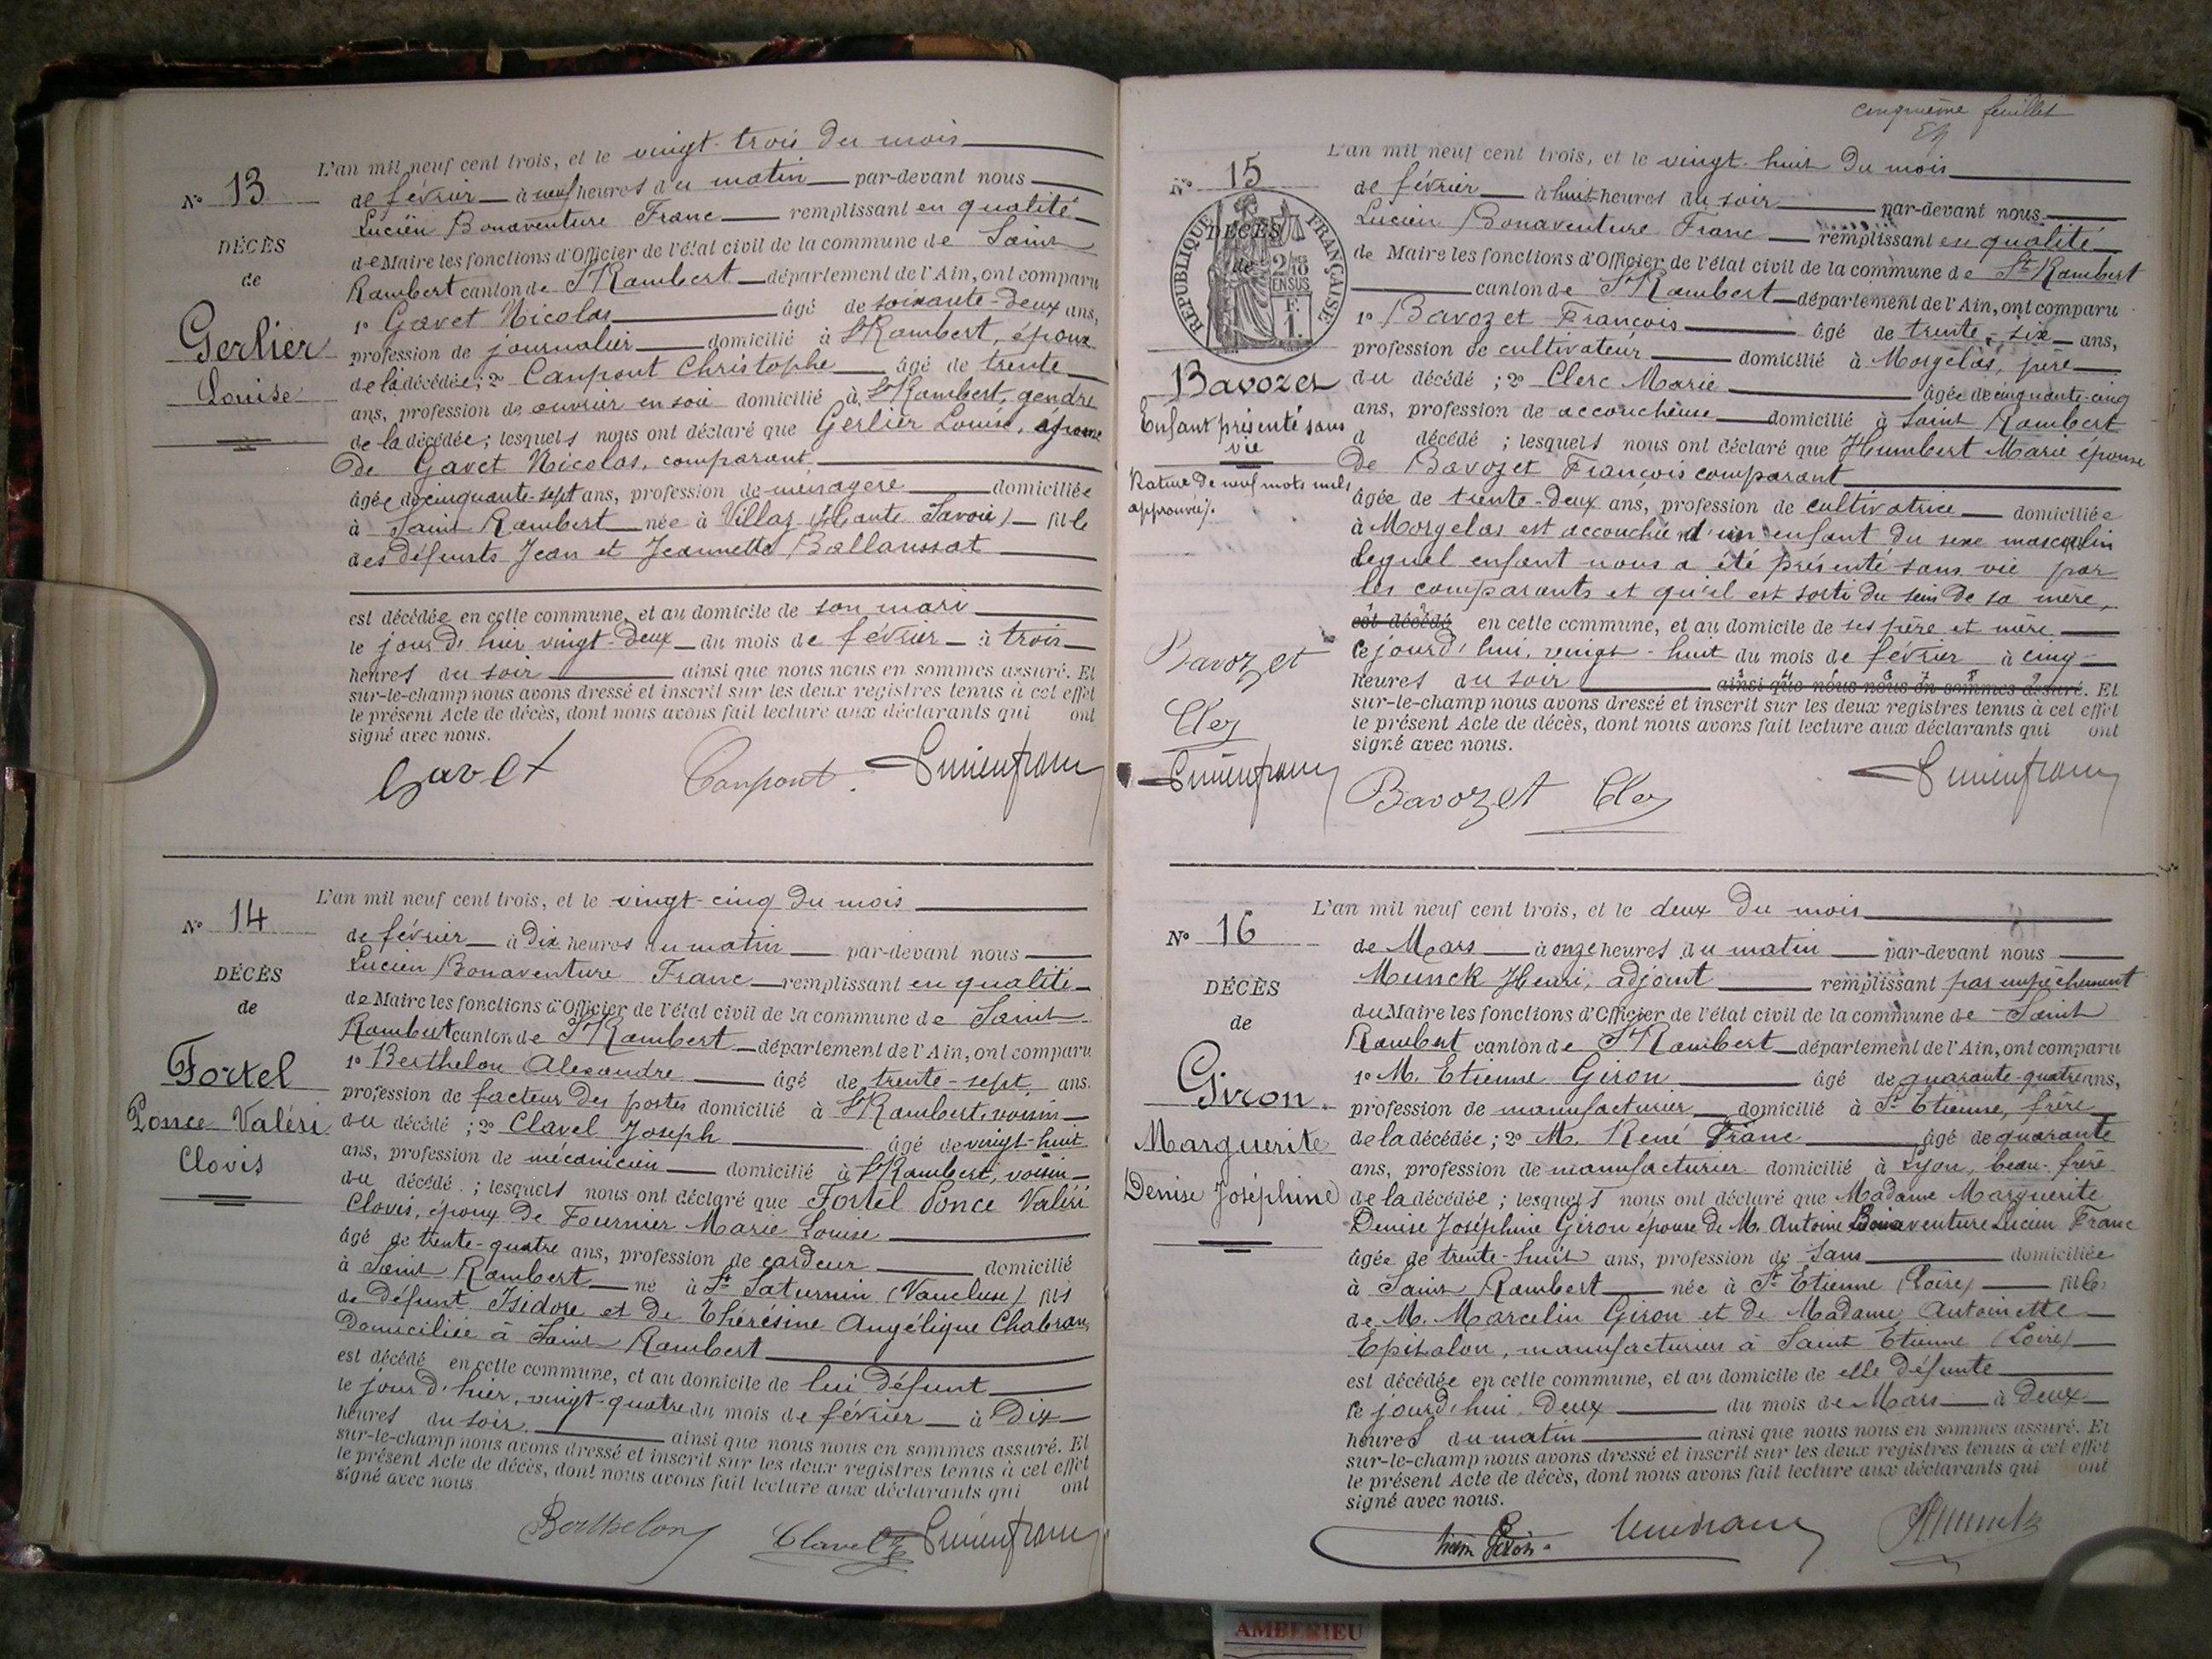 N° 13
DÉCÈS
de
Gerlier
Louise
L'an mil neuf cent trois, et le vingt-trois du mois
de février à neuf heures du matin par-devant nous
Lucien Bonaventure Franc remplissant en qualité
de Maire les fonctions d'Officier de l'état civil de la commune de Saint
Rambert canton de St Rambert département de l'Ain, ont comparu
1° Gavet Nicolas âgé de soixante-deux ans,
profession de journalier domicilié à St Rambert, époux
de la décédée; 2° Canpont Christophe âgé de trente
ans, profession de ouvrier en soie domicilié à St Rambert, gendre
de la décédée; lesquels nous ont déclaré que Gerlier Louise, épouse
De Gavet Nicolas, comparant,
âgée de cinquante-sept ans, profession de ménagère domiciliée
à Saint Rambert née à Villaz (Haute Savoie) fille
des défunts Jean et Jeannette Ballanssat
est décédée en cette commune, et au domicile de son mari
le jour d'hier vingt-deux du mois de février à trois
heures du soir ainsi que nous nous en sommes assuré. Et
sur-le-champ nous avons dressé et inscrit sur les deux registres tenus à cet effet
le présent Acte de décès, dont nous avons fait lecture aux déclarants qui ont
signé avec nous.
Gavet Canpont Lucienfranc
N° 14
DÉCÈS
de
Fortel
Ponce Valéri
Clovis
L'an mil neuf cent trois, et le vingt-cinq du mois
de février à Dix heures du matin par-devant nous
Lucien Bonaventure Franc remplissant en qualité
de Maire les fonctions d'Officier de l'état civil de la commune de Saint
Rambert canton de St Rambert département de l'Ain, ont comparu
1° Berthelon Alexandre âgé de trente-sept ans.
profession de facteur Des postes domicilié à St Rambert, voisin
du décédé; 2° Clavel Joseph âgé de vingt-huit
ans, profession de mécanicien domicilié à St Rambert, voisin
du décédé; lesquels nous ont déclaré que Fortel Ponce Valéri
Clovis, époux De Fournier Marie Louise
âgé de trente-quatre ans, profession de cardeur domicilié
à Saint Rambert né à St Saturnin (Vaucluse) fils
de Défunt Isidore et de Thérésine Angélique Chabran,
Domiciliée à Saint Rambert
est décédé en cette commune, et au domicile de lui défunt
le jour d'hier, vingt-quatre du mois de février à Dix
heures du soir. ainsi que nous nous en sommes assuré. Et
sur-le-champ nous avons dressé et inscrit sur les deux registres tenus à cet effet
le présent Acte de décès, dont nous avons fait lecture aux déclarants qui ont
signé avec nous.
Berthelon Clavel Lucienfranc
cinquième feuillet
N° 15
DÉCÈS
de
RÉPUBLIQUE FRANÇAISE
2/10 EN SUS
1 F.
Bavozet
Enfant présenté sans
vie
Rature de neuf mots nuls
approuvés.
Bavozet
Clerc
Lucienfranc
L'an mil neuf cent trois, et le vingt-huit du mois
de février à huit heures du soir par-devant nous
Lucien Bonaventure Franc remplissant en qualité
de Maire les fonctions d'Officier de l'état civil de la commune de St Rambert
canton de St Rambert département de l'Ain, ont comparu
1° Bavozet François âgé de trente-six ans,
profession de cultivateur domicilié à Morgelas, père
du décédé; 2° Clerc Marie âgée de cinquante-cinq
ans, profession de accoucheuse domicilié à Saint Rambert
d décédé; lesquels nous ont déclaré que Humbert Marie épouse
De Bavozet François comparant
âgée de trente-deux ans, profession de cultivatrice domiciliée
à Morgelas est accouchée d'un enfant du sexe masculin
lequel enfant nous a été présenté sans vie par
les comparants et qu'il est sorti du sein de sa mère,
est décédé en cette commune, et au domicile de ses père et mère
ce jourd'hui, vingt-huit du mois de février à cinq
heures du soir ainsi que nous nous en sommes assuré. Et
sur-le-champ nous avons dressé et inscrit sur les deux registres tenus à cet effet
le présent Acte de décès, dont nous avons fait lecture aux déclarants qui ont
signé avec nous.
Bavozet Clerc Lucienfranc
N° 16
DÉCÈS
de
Giron
Marguerite
Denise Joséphine
L'an mil neuf cent trois, et le deux Du mois
de Mars à onze heures du matin par-devant nous
Munck Henri, adjoint remplissant par empêchement
du Maire les fonctions d'Officier de l'état civil de la commune de Saint
Rambert canton de St Rambert département de l'Ain, ont comparu
1° M. Etienne Giron âgé de quarante-quatre ans,
profession de manufacturier domicilié à St Etienne, frère
de la décédée; 2° M. René Franc âgé de quarante
ans, profession de manufacturier domicilié à Lyon, beau-frère
de la décédée; lesquels nous ont déclaré que Madame Marguerite
Denise Joséphine Giron épouse de M. Antoine Bonaventure Lucien Franc
âgée de trente-huit ans, profession de sans domiciliée
à Saint Rambert née à St Etienne (Loire) fille
de M. Marcelin Giron et de Madame Antoinette
Epitalon, manufacturiers à Saint Etienne (Loire)
est décédée en cette commune, et au domicile de elle défunte
ce jourd'hui Deux du mois de Mars à Deux
heures du matin ainsi que nous nous en sommes assuré. Et
sur-le-champ nous avons dressé et inscrit sur les deux registres tenus à cet effet
le présent Acte de décès, dont nous avons fait lecture aux déclarants qui ont
signé avec nous.
Giron
AMBERIEU